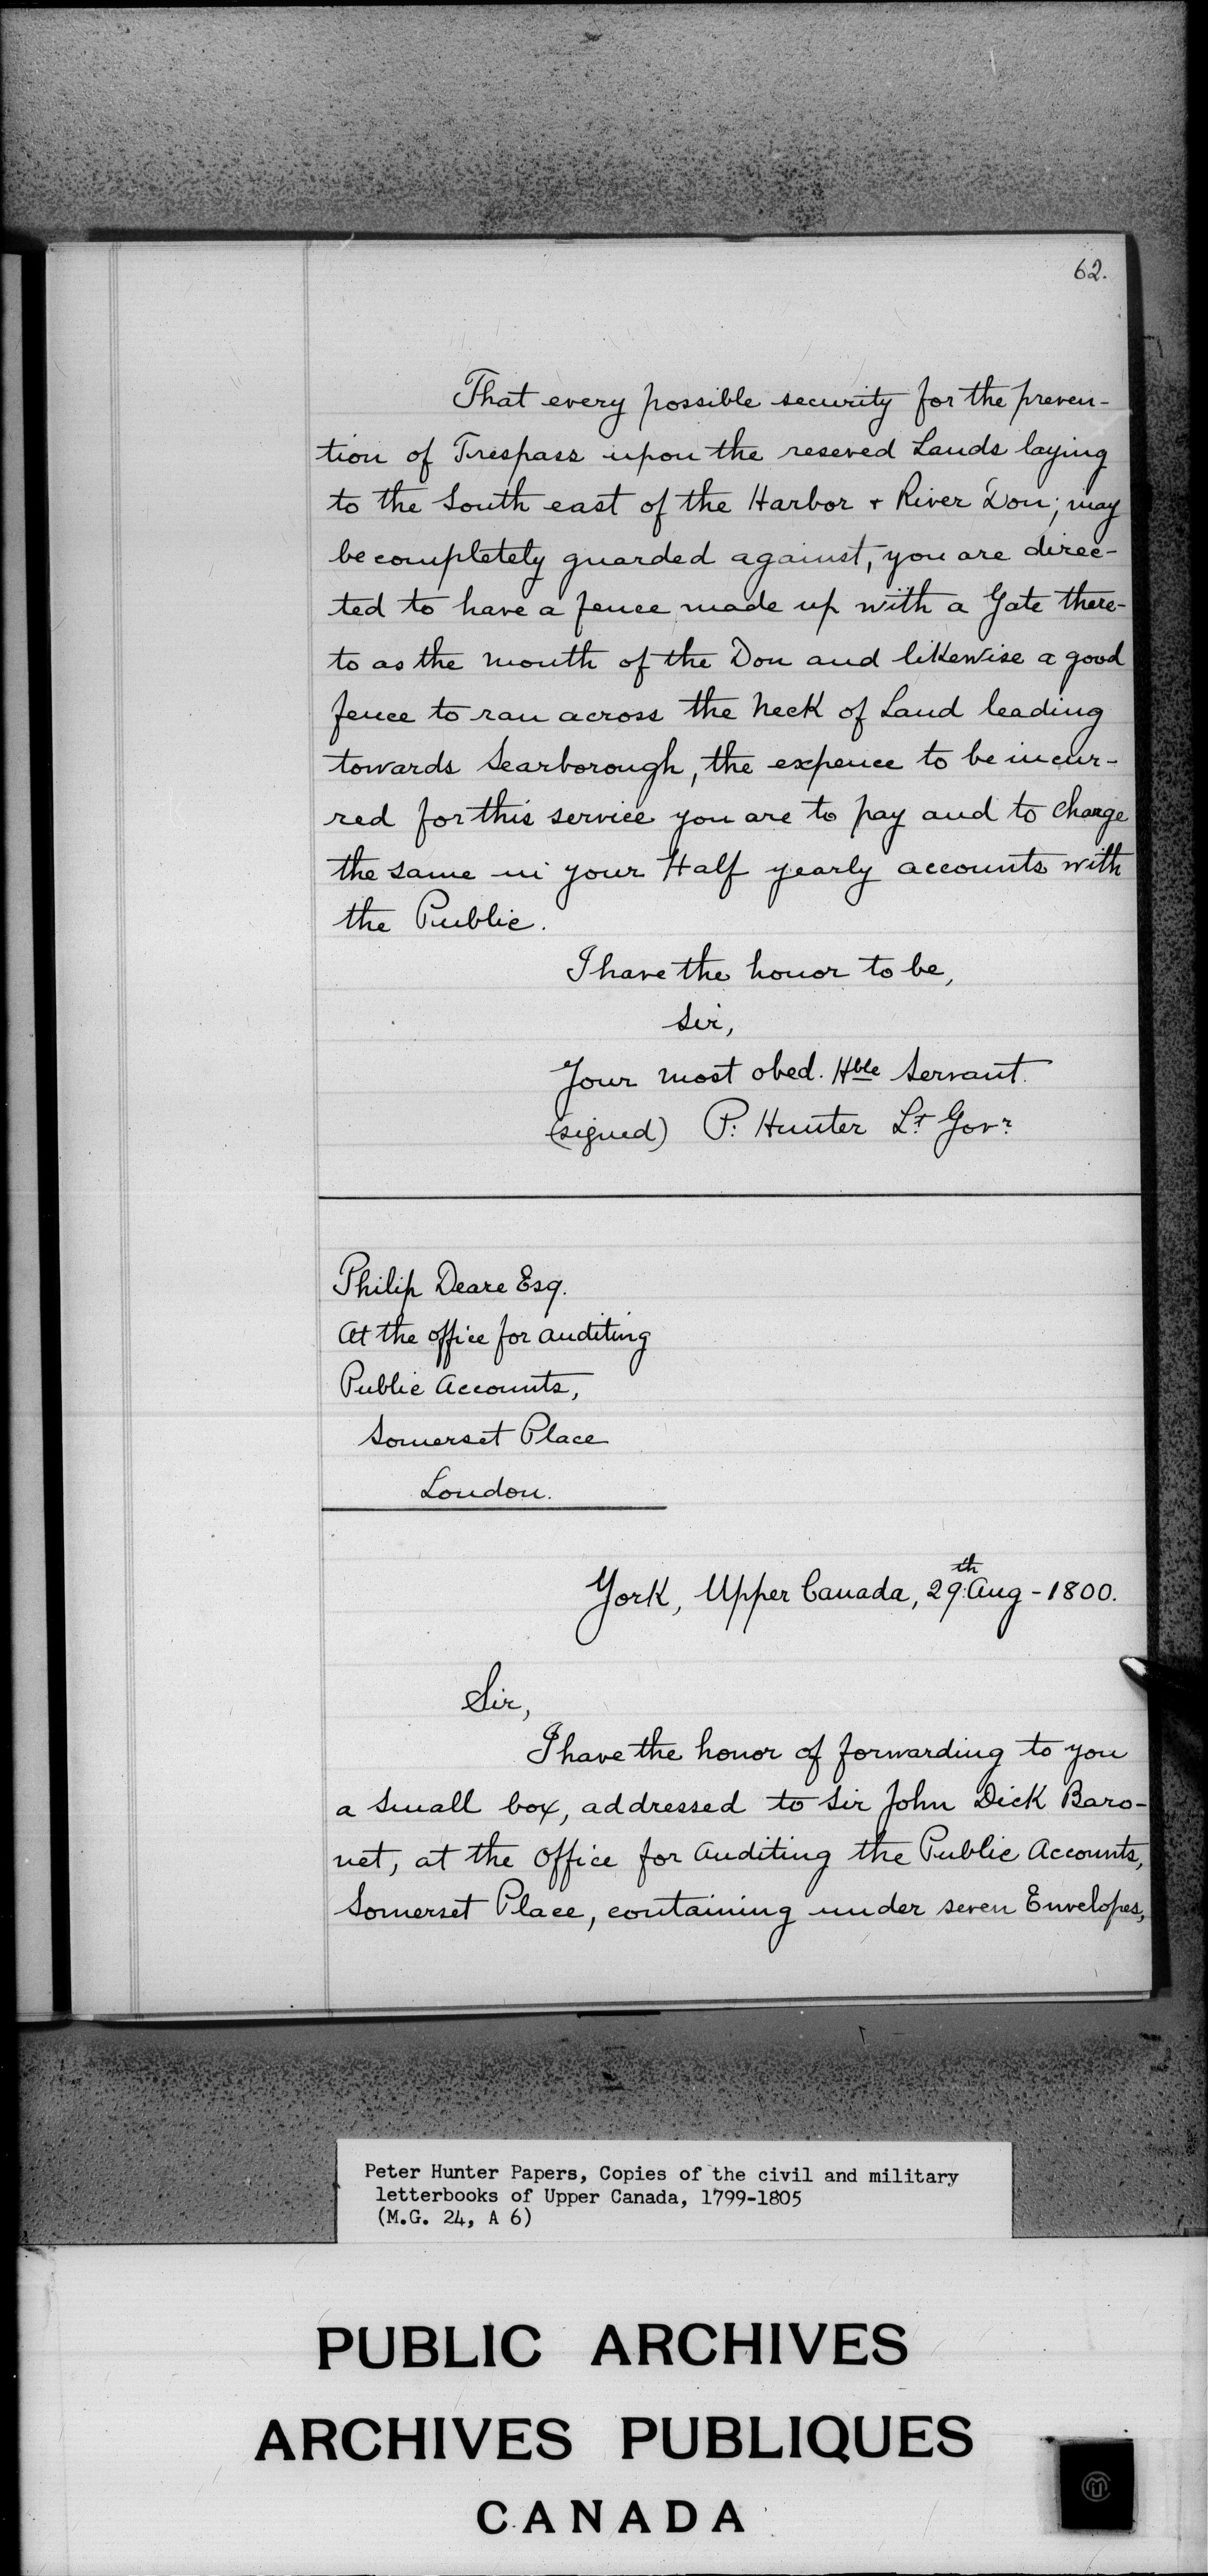 62.
That every possible security for the preven-
tion of Trespass upon the reseved Lands laying
to the South east of the Harbor + River Don; may
be completely guarded against, you are direc-
ted to have a fence made up with a Gate there-
to as the mouth of the Don and likewise a good
fence to ran across the Neck of Land leading
towards Scarborough, the expence to be incur-
red for this service you are to pay and to charge
the same in your Half yearly accounts with
the Public.
I have the honor to be,
Sir,
Your most obed. Hble Servant.
(signed) P. Hunter Lt Govr
Philip Deare Esq.
At the office for auditing
Public Accounts,
Somerset Place
London.
York, Upper Canada, 29th Aug - 1800.
Sir,
I have the honor of forwarding to you
a Small box, addressed to Sir John Dick Baro-
net, at the Office for Auditing the Public Accounts,
Somerset Place, containing under seven Envelopes,
Peter Hunter Papers, Copies of the civil and military
letterbooks of Upper Canada, 1799-1805
(M.G. 24, A 6)
PUBLIC ARCHIVES
ARCHIVES PUBLIQUES
CANADA